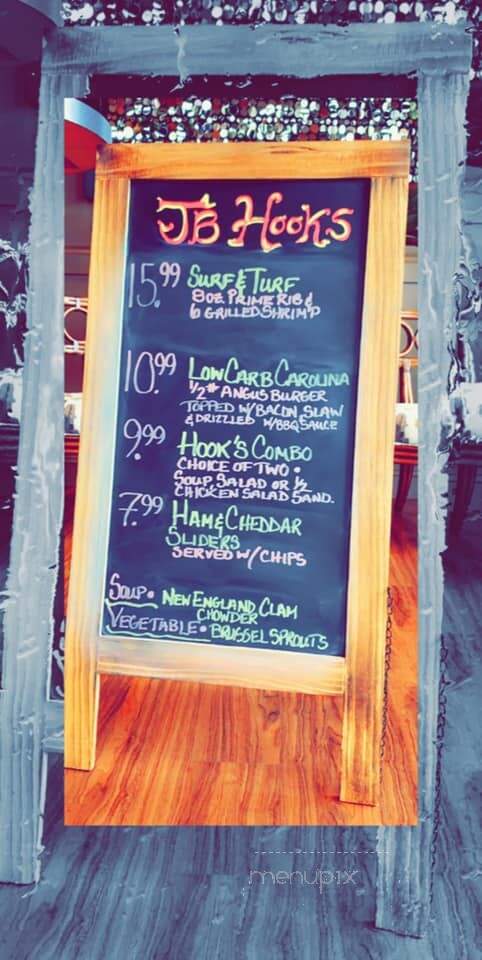 JB Hooks
15.99 Surf & Turf
8oz. Prime Rib &
6 Grilled Shrimp
10.99 Low Carb Carolina
1/2# Angus Burger
Topped w/Bacon, Slaw
& Drizzled w/BBQ Sauce
9.99 Hook's Combo
Choice of Two •
Soup Salad or 1/2
Chicken Salad Sand.
7.99 Ham & Cheddar
Sliders
Served w/ Chips
Soup • New England Clam
Chowder
Vegetable • Brussel Sprouts
menupix